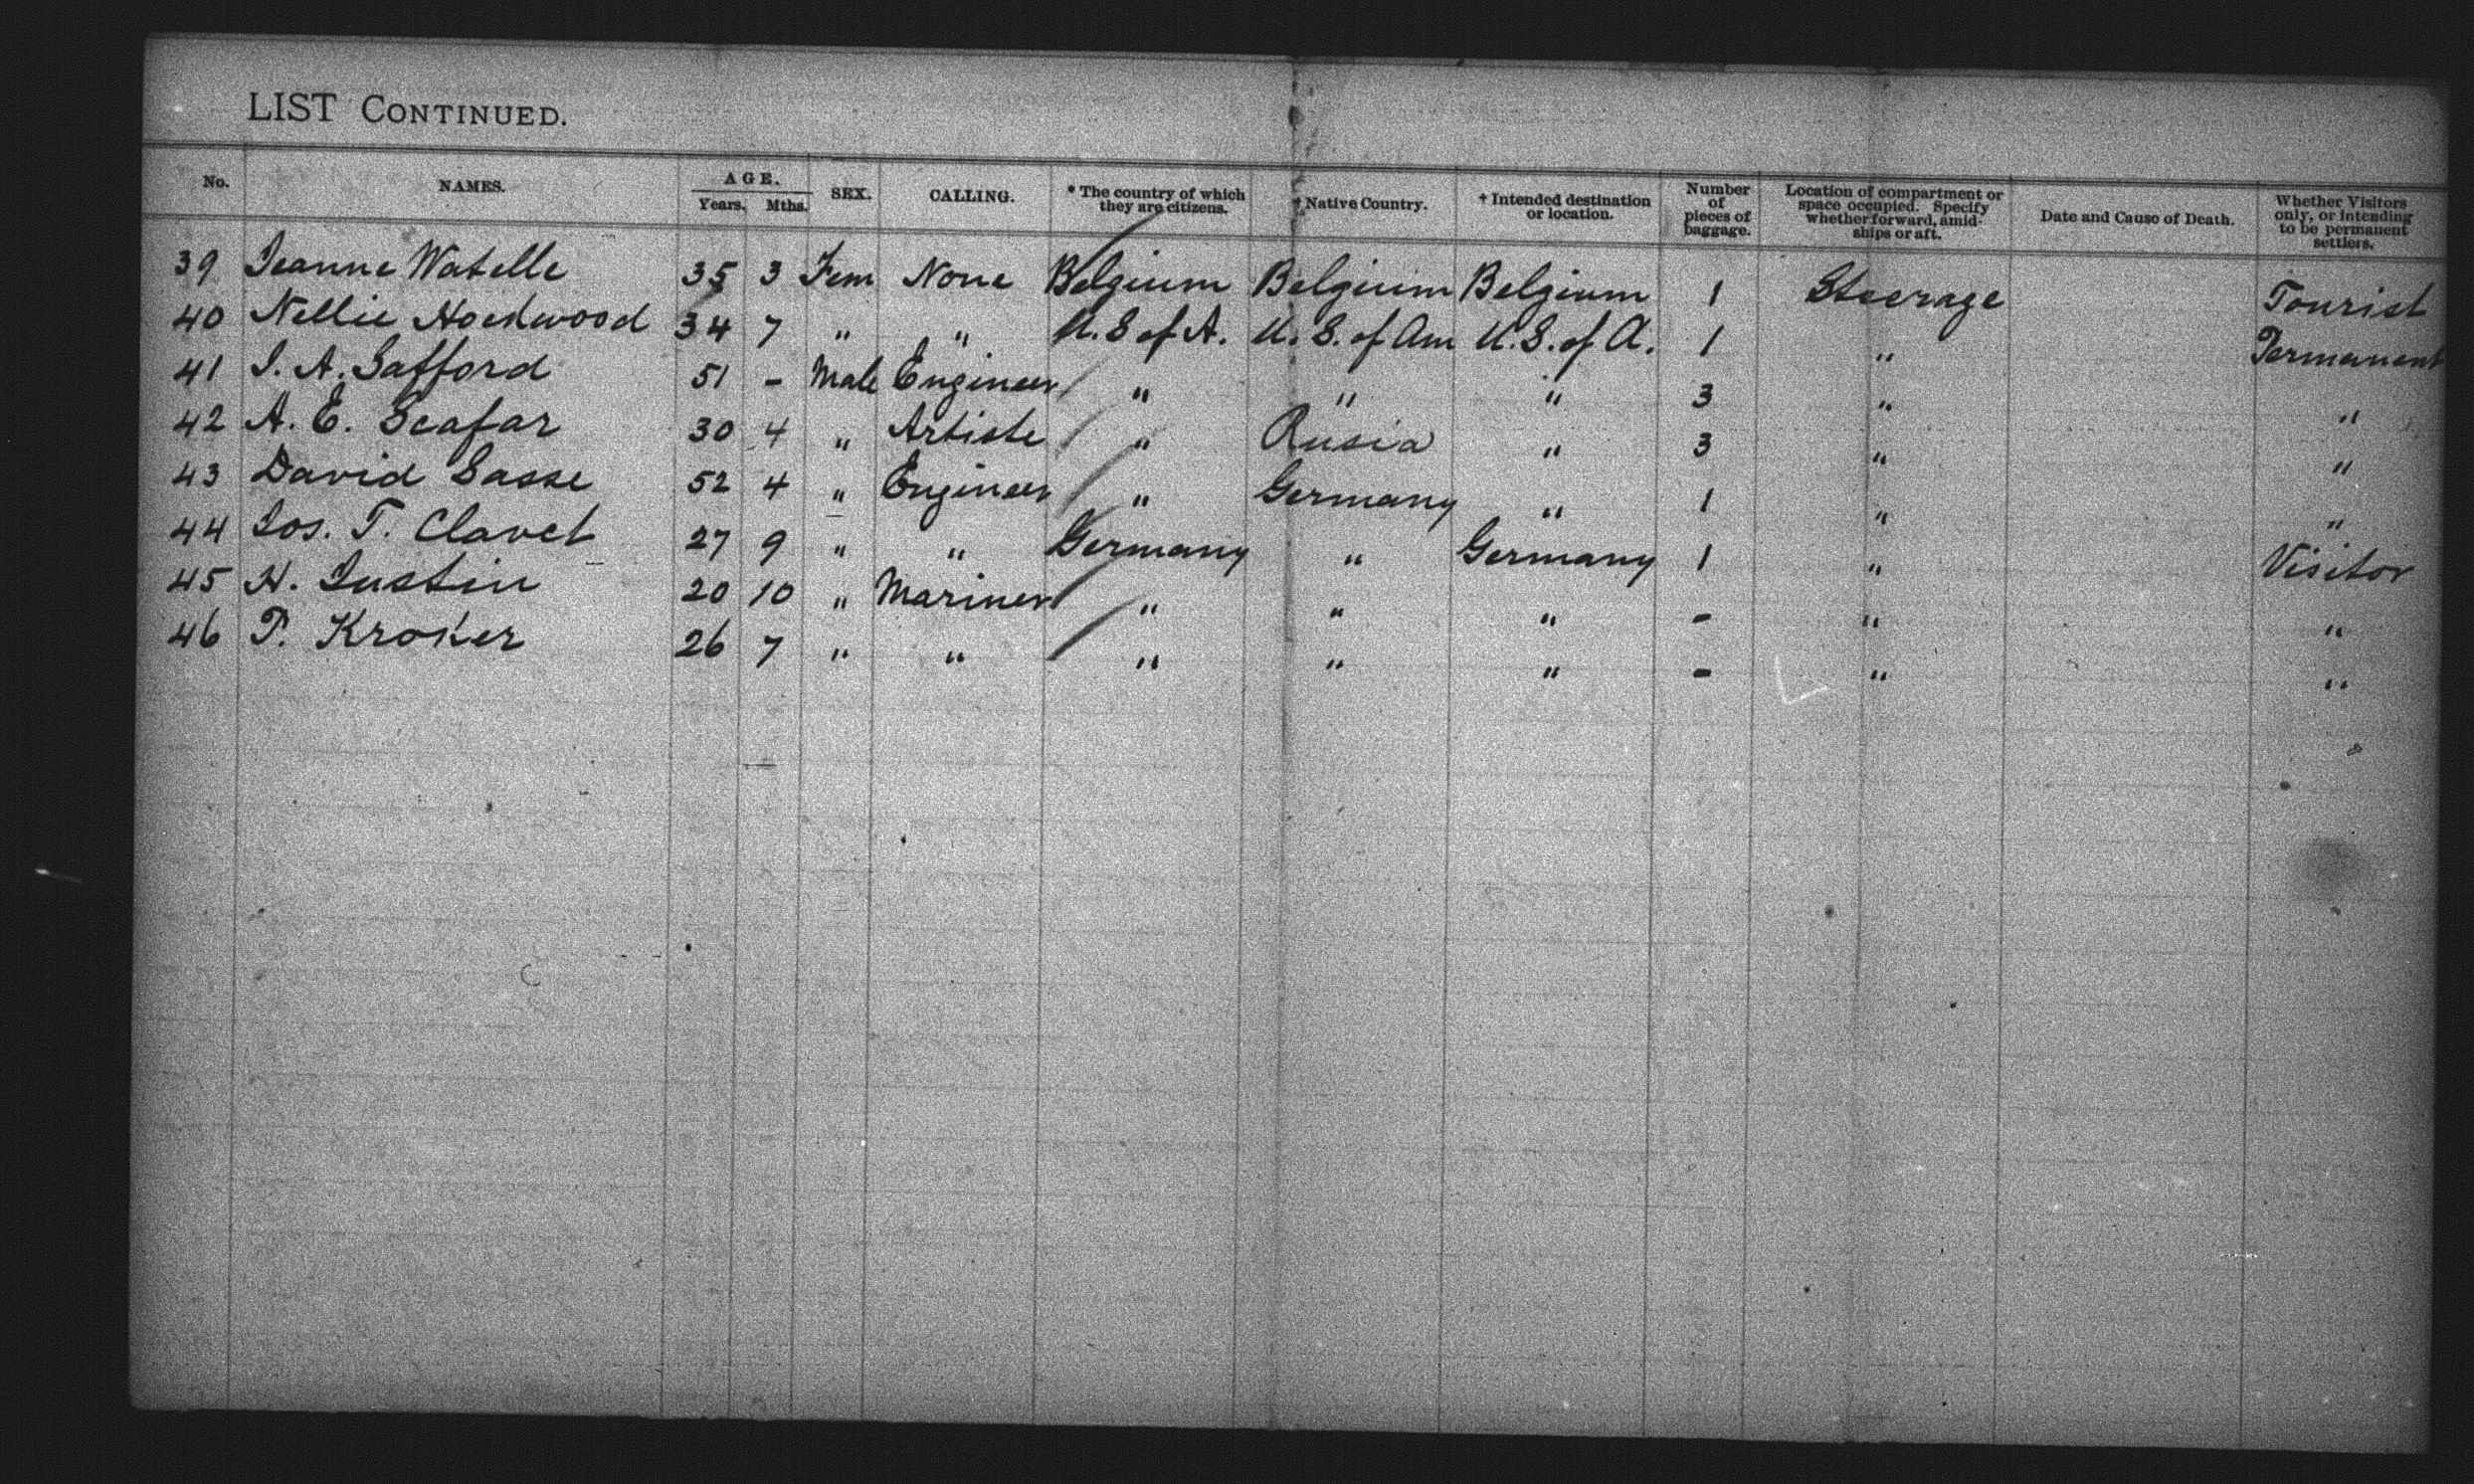 LIST CONTINUED.
No. NAMES. AGE. Years. Mths. SEX. CALLING. * The country of which they are citizens. † Native Country. † Intended destination or location. Number of pieces of baggage. Location of compartment or space occupied. Specify whether forward, amidships or aft. Date and Cause of Death. Whether Visitors only, or intending to be permanent settlers.
39 Jeanne Watelle 35 3 Fem None Belgium Belgium Belgium 1 Steerage Tourist
40 Nellie Hockwood 34 7 " " U.S of A. U.S. of Am U.S. of A. 1 " Permanent
41 J. A. Safford 51 - Male Engineer " " " 3 " "
42 A. E. Seafar 30 4 " Artiste " Rusia " 3 " "
43 David Sasse 52 4 " Engineer " Germany " 1 " "
44 Jos. T. Clavet 27 9 " " Germany " Germany 1 " Visitor
45 H. Justin 20 10 " Mariner " " " - " "
46 P. Kroker 26 7 " " " " " - " "